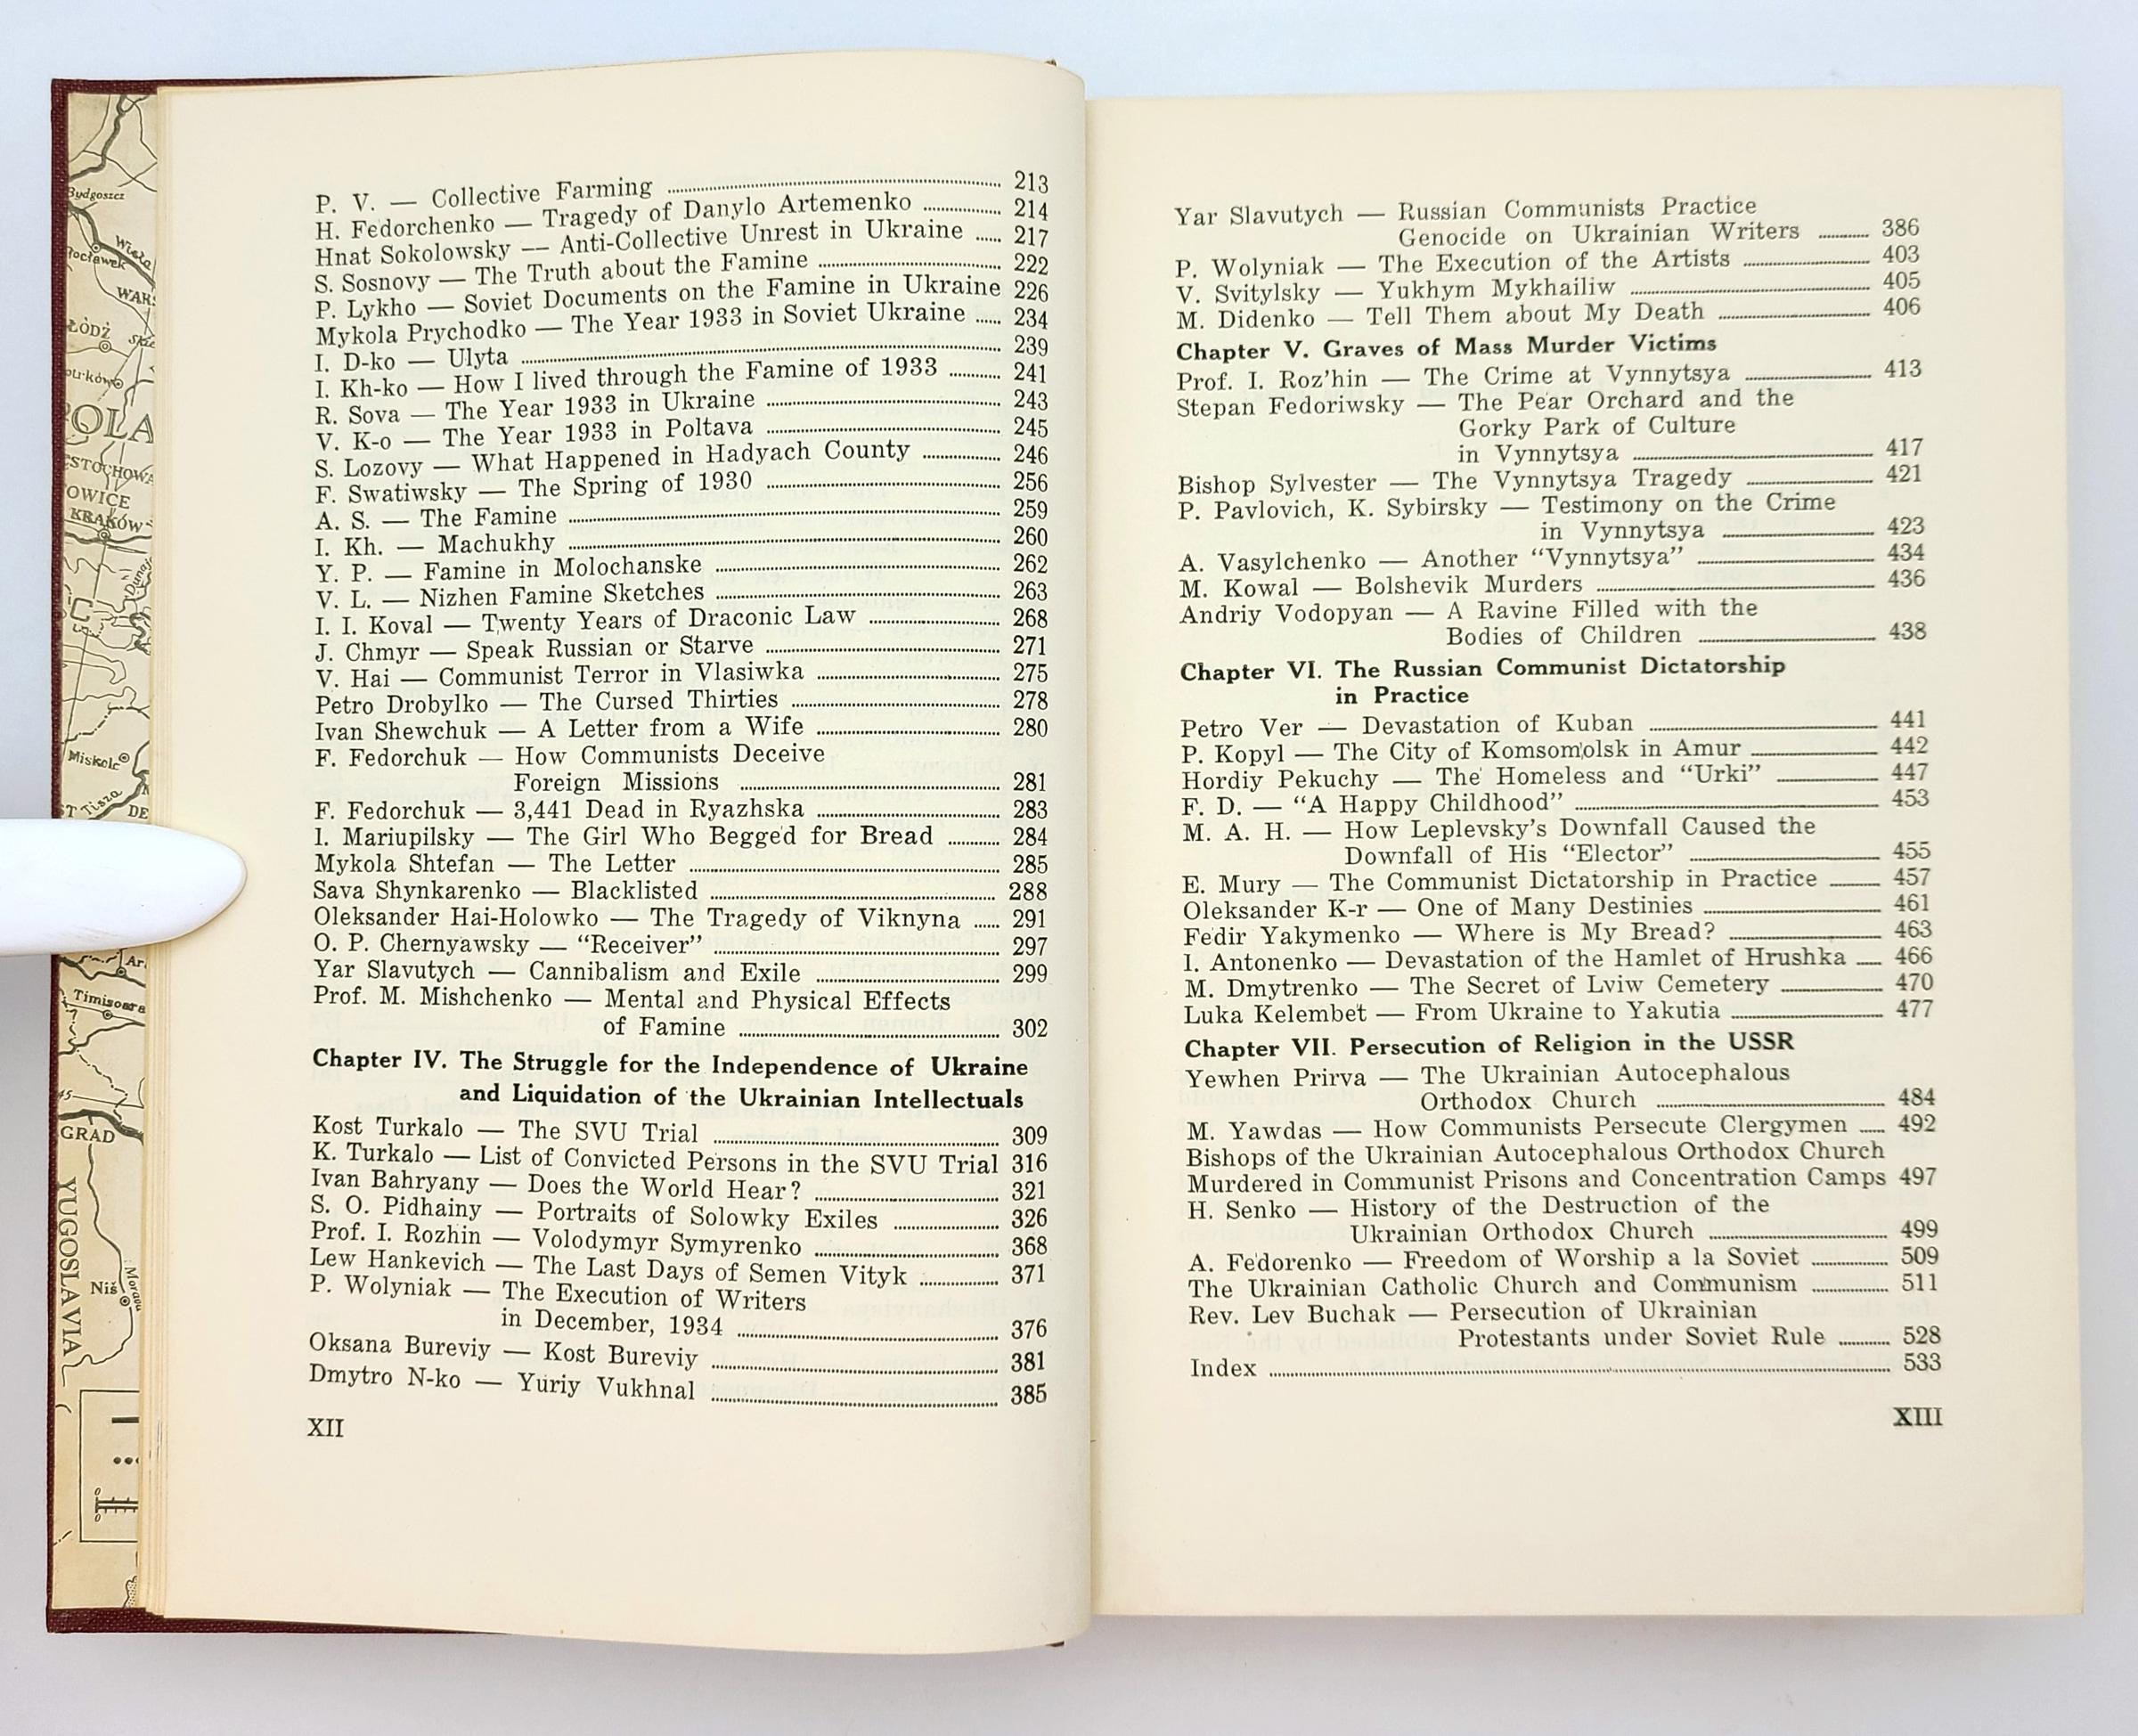 Bydgoszcz
Wisła
WARS
ŁÓDŹ
OLA
OWICE
KRAKÓW
Miskolc
Tisza
DE
Ar
Timisoara
45
GRAD
YUGOSLAVIA
Niš
Morava
P. V. — Collective Farming 213
H. Fedorchenko — Tragedy of Danylo Artemenko 214
Hnat Sokolowsky — Anti-Collective Unrest in Ukraine 217
S. Sosnovy — The Truth about the Famine 222
P. Lykho — Soviet Documents on the Famine in Ukraine 226
Mykola Prychodko — The Year 1933 in Soviet Ukraine 234
I. D-ko — Ulyta 239
I. Kh-ko — How I lived through the Famine of 1933 241
R. Sova — The Year 1933 in Ukraine 243
V. K-o — The Year 1933 in Poltava 245
S. Lozovy — What Happened in Hadyach County 246
F. Swatiwsky — The Spring of 1930 256
A. S. — The Famine 259
I. Kh. — Machukhy 260
Y. P. — Famine in Molochanske 262
V. L. — Nizhen Famine Sketches 263
I. I. Koval — Twenty Years of Draconic Law 268
J. Chmyr — Speak Russian or Starve 271
V. Hai — Communist Terror in Vlasiwka 275
Petro Drobylko — The Cursed Thirties 278
Ivan Shewchuk — A Letter from a Wife 280
F. Fedorchuk — How Communists Deceive
Foreign Missions 281
F. Fedorchuk — 3,441 Dead in Ryazhska 283
I. Mariupilsky — The Girl Who Begged for Bread 284
Mykola Shtefan — The Letter 285
Sava Shynkarenko — Blacklisted 288
Oleksander Hai-Holowko — The Tragedy of Viknyna 291
O. P. Chernyawsky — “Receiver” 297
Yar Slavutych — Cannibalism and Exile 299
Prof. M. Mishchenko — Mental and Physical Effects
of Famine 302
Chapter IV. The Struggle for the Independence of Ukraine
and Liquidation of the Ukrainian Intellectuals
Kost Turkalo — The SVU Trial 309
K. Turkalo — List of Convicted Persons in the SVU Trial 316
Ivan Bahryany — Does the World Hear? 321
S. O. Pidhainy — Portraits of Solowky Exiles 326
Prof. I. Rozhin — Volodymyr Symyrenko 368
Lew Hankevich — The Last Days of Semen Vityk 371
P. Wolyniak — The Execution of Writers
in December, 1934 376
Oksana Bureviy — Kost Bureviy 381
Dmytro N-ko — Yuriy Vukhnal 385
XII
Yar Slavutych — Russian Communists Practice
Genocide on Ukrainian Writers 386
P. Wolyniak — The Execution of the Artists 403
V. Svitylsky — Yukhym Mykhailiw 405
M. Didenko — Tell Them about My Death 406
Chapter V. Graves of Mass Murder Victims
Prof. I. Roz’hin — The Crime at Vynnytsya 413
Stepan Fedoriwsky — The Pear Orchard and the
Gorky Park of Culture
in Vynnytsya 417
Bishop Sylvester — The Vynnytsya Tragedy 421
P. Pavlovich, K. Sybirsky — Testimony on the Crime
in Vynnytsya 423
A. Vasylchenko — Another “Vynnytsya” 434
M. Kowal — Bolshevik Murders 436
Andriy Vodopyan — A Ravine Filled with the
Bodies of Children 438
Chapter VI. The Russian Communist Dictatorship
in Practice
Petro Ver — Devastation of Kuban 441
P. Kopyl — The City of Komsomolsk in Amur 442
Hordiy Pekuchy — The Homeless and “Urki” 447
F. D. — “A Happy Childhood” 453
M. A. H. — How Leplevsky’s Downfall Caused the
Downfall of His “Elector” 455
E. Mury — The Communist Dictatorship in Practice 457
Oleksander K-r — One of Many Destinies 461
Fedir Yakymenko — Where is My Bread? 463
I. Antonenko — Devastation of the Hamlet of Hrushka 466
M. Dmytrenko — The Secret of Lviw Cemetery 470
Luka Kelembet — From Ukraine to Yakutia 477
Chapter VII. Persecution of Religion in the USSR
Yewhen Prirva — The Ukrainian Autocephalous
Orthodox Church 484
M. Yawdas — How Communists Persecute Clergymen 492
Bishops of the Ukrainian Autocephalous Orthodox Church
Murdered in Communist Prisons and Concentration Camps 497
H. Senko — History of the Destruction of the
Ukrainian Orthodox Church 499
A. Fedorenko — Freedom of Worship a la Soviet 509
The Ukrainian Catholic Church and Communism 511
Rev. Lev Buchak — Persecution of Ukrainian
Protestants under Soviet Rule 528
Index 533
XIII